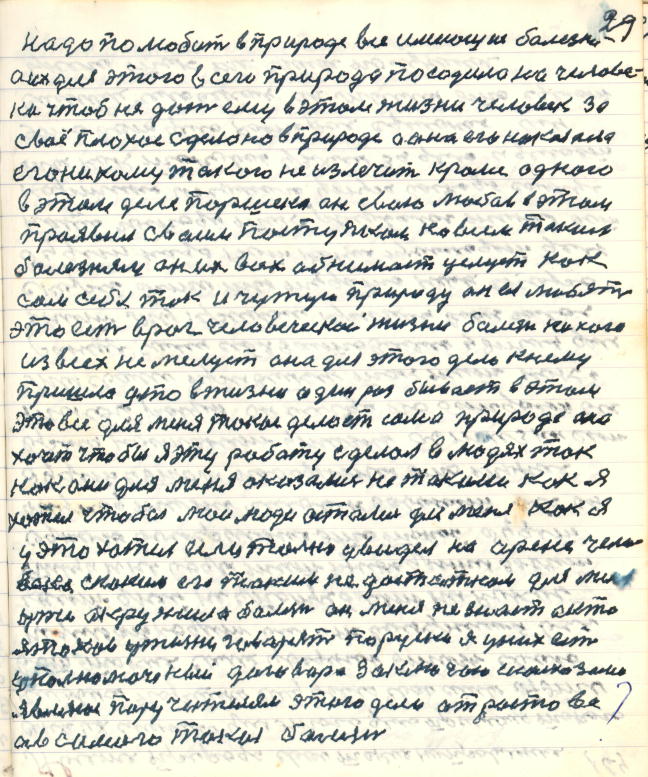 29
надо по любит в природе все имеющие балезни
а их для этого всего природа посодила на челове-
ка чтоб не дот ему в этом жизни человек за
своё плохое сделоно в природе а она его показала
его никому такого не излечит кроме одного
в этом деле Поршека он свою любов в этом
проявил своим Поступком ко всем таким
болезням он их всех обнимает целует как
сам себя так и чужую природу он ея любять
это ест враг человеческой жизни балезн никого
из всех не мелует она для этого дело к нему
пришла што в жизни один раз бывает в этом
Это все для меня токое делоет сама природе она
хочит чтобы я эту работу сделол в людях так
как они для меня оказалис не такими как я
хотел чтобы мои люди осталис для меня как я
у это хотел если толко увидел на арене чело
века с каким его таким не достатком для мне
окружила балезн он меня не знает а кто
я таков у жизни говарят Поруски я у них ест
уполномоченый договара Заключаю
явлюсь Поручителем этого дела от роста ва
ав самого такая балезн